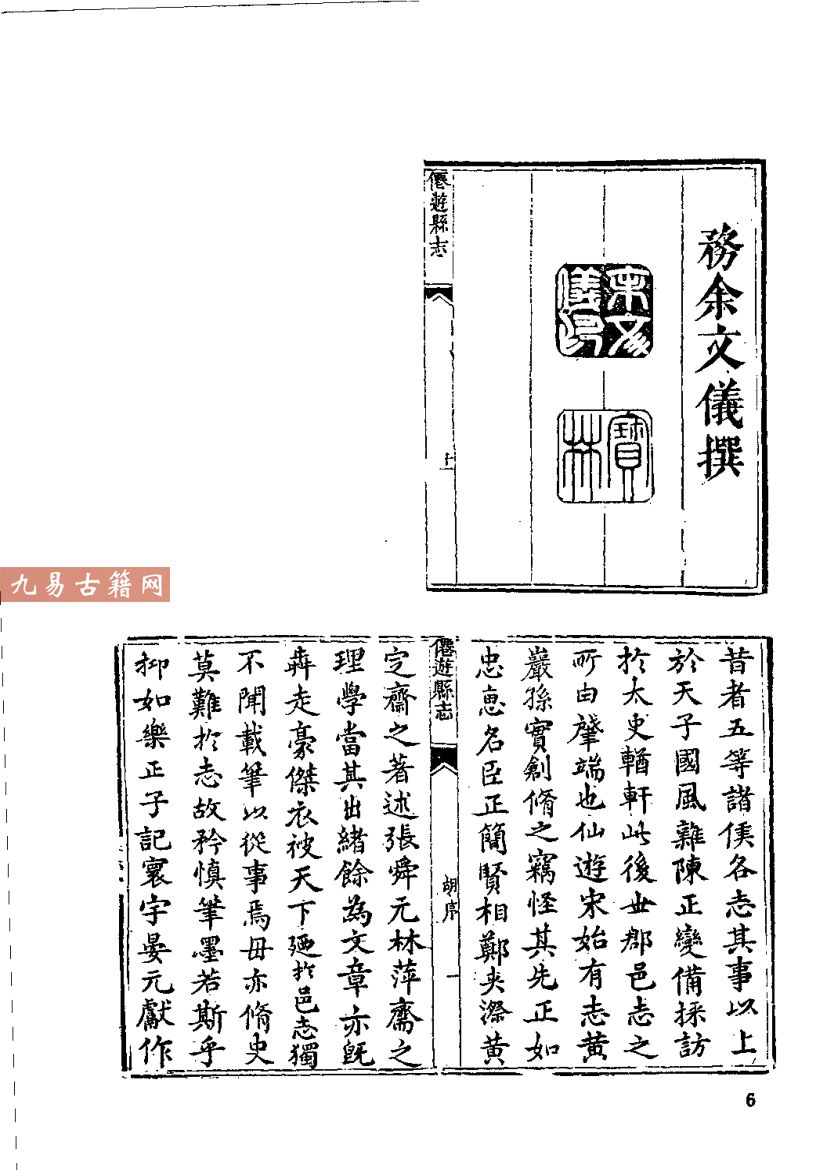 務余文儀撰
余文儀印
寶林
僊遊縣志
十一
九易古籍网
昔者五等諸侯各志其事以上
於天子國風雜陳正變備採訪
於太史輶軒此後世郡邑志之
所由肇端也仙遊宋始有志黄
巖孫實創脩之竊怪其先正如
忠惠名臣正簡賢相鄭夾漈黄
僊遊縣志
胡序
一
定齋之著述張舜元林萍齋之
理學當其出緒餘為文章亦旣
犇走豪傑衣被天下廼於邑志獨
不聞載筆以從事焉毋亦脩史
莫難於志故矜慎筆墨若斯乎
抑如樂正子記寰宇晏元獻作
6